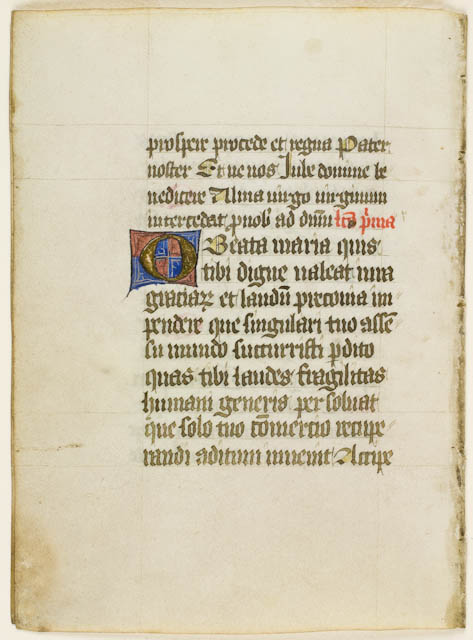 prospere procede et regna Pater
noster Et ne nos Iube domine be
nedicere Alma virgo virginum
intercedat p nob ad dnm lcō pma
O Beata maria quis
tibi digne valeat iura
graciaꝝ et laudū preconia im
pendere que singulari tuo assē
su mundo succurristi pdito
quas tibi laudes fragilitas
humani generis per soluat
que solo tuo cōmercio recupe
randi aditum invenit Accipe